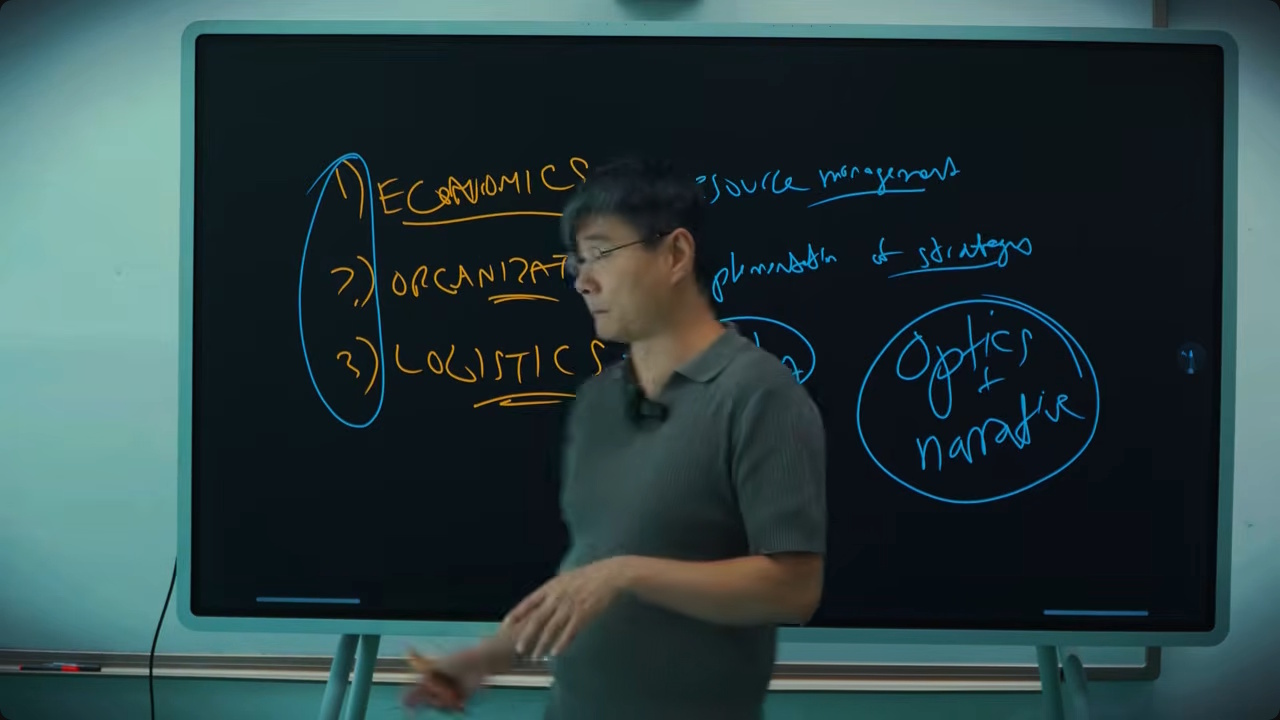 1) ECONOMICS esource management
2.) ORGANIZAT plementation of strategies
3) LOGISTICS
Optics
+
narrative